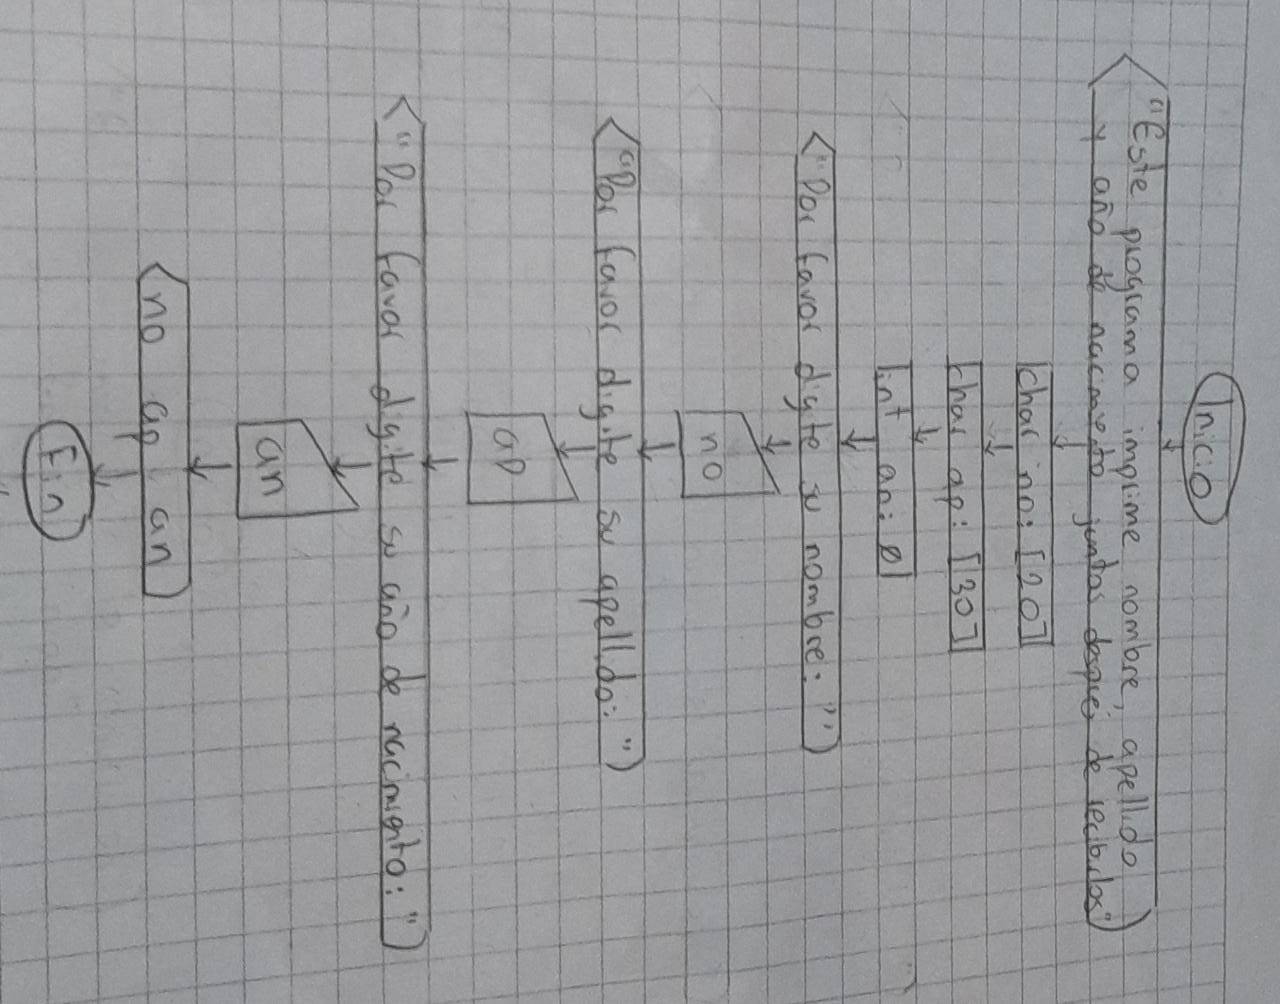 Inicio
"Este programa imprime nombre, apellido
y año de nacimiento juntos después de recibidos"
char no: [20]
char ap: [30]
int an: 0
"Por favor digite su nombre: "
no
"Por favor digite su apellido: "
ap
"Por favor digite su año de nacimiento: "
an
no ap an
Fin